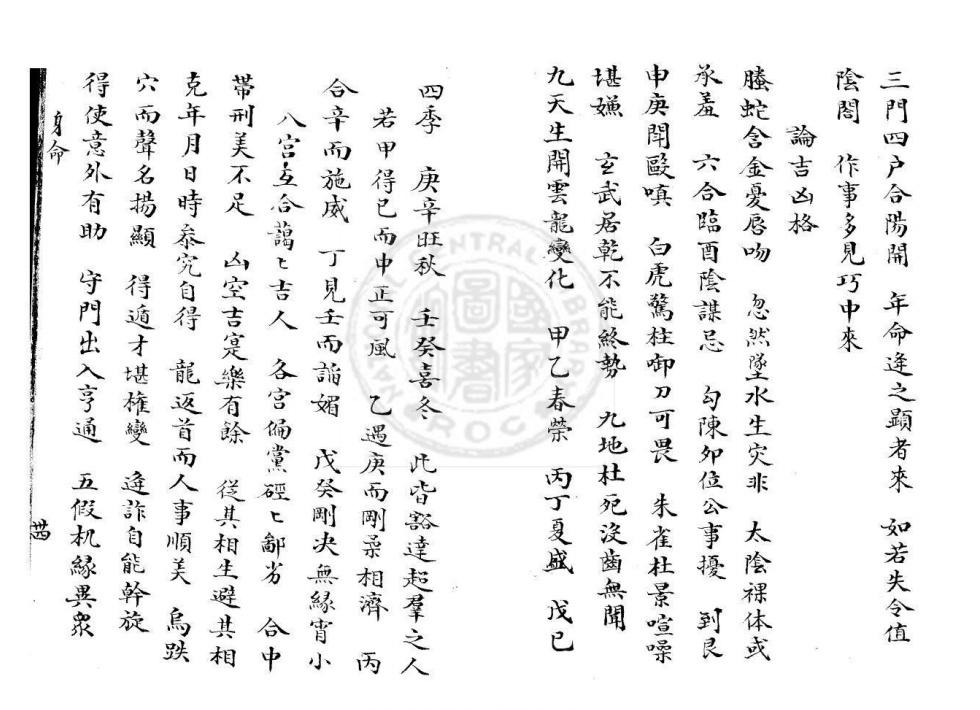 三門四户合陽開　年命逄之顕者來　如若失令值
陰閤　作事多見巧中來
論吉凶格
螣蛇含金憂唇吻　忽然墜水生灾非　太陰裸体或
承羞　六合臨酉陰謀忌　勾陳夘位公事擾　到艮
申庚鬥毆嗔　白虎驚柱御刀可畏　朱雀杜景喧噪
堪嫌　玄武居乾不能終勢　九地杜死沒齒無聞
九天生開雲龍變化　甲乙春榮　丙丁夏盛　戊己
四季　庚辛旺秋　壬癸喜冬　此皆豁達超羣之人
若甲得己而中正可風　乙遇庚而剛柔相濟　丙
合辛而施威　丁見壬而謟媚　戊癸剛决無縁宵小
八宮互合藹〻吉人　各宮偏黨硜〻鄙劣　合中
帶刑美不足　凶空吉寔樂有餘　從其相生避其相
克年月日時叅究自得　龍返首而人事順美　鳥跌
穴而聲名揚顯　得遁才堪權變　逄詐自能幹旋
得使意外有助　守門出入亨通　五假机緣異衆
身命
卌四
CENTRAL LIBRARY
ROC
國家圖書館